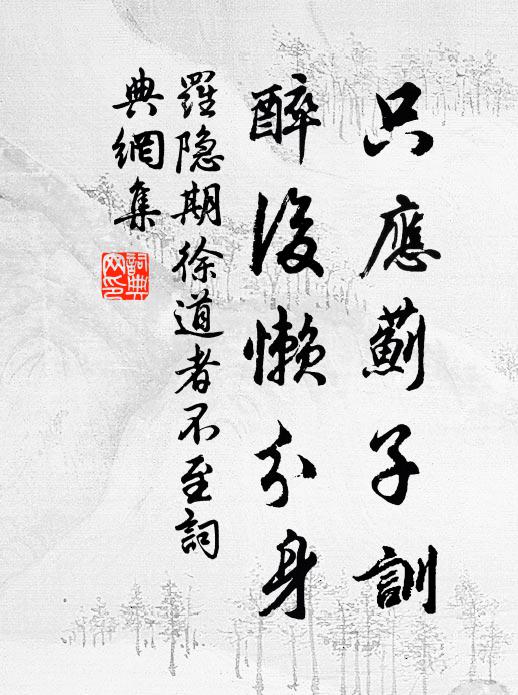 只應薊子訓
醉後懶分身
羅隐期徐道者不至詞
典網集
詞典網印